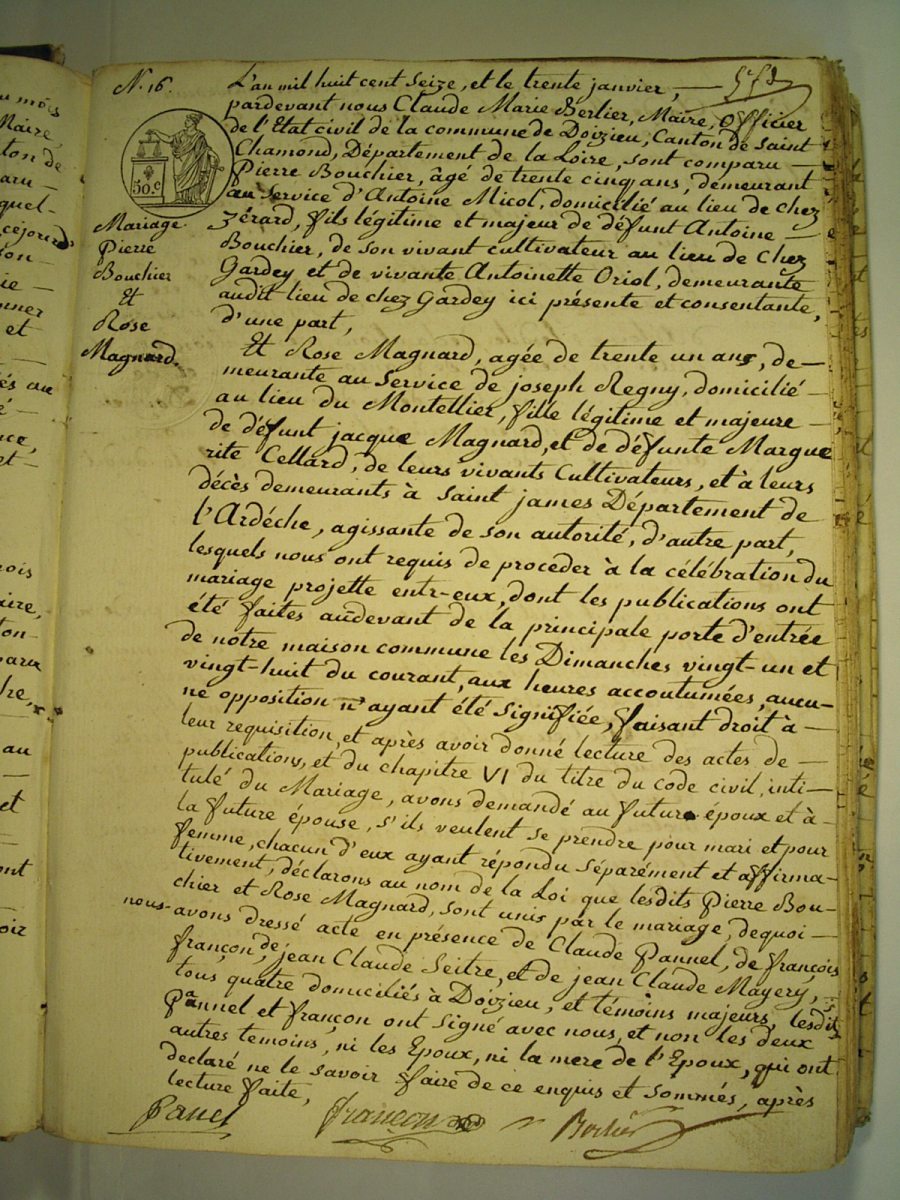 N. 16.
L'an mil huit cent Seize, et le trente janvier,
pardevant nous Claude Marie Berlier, Maire, Officier
de l'Etat civil de la commune de Doizieu, Canton de Saint
Chamond, Département de la Loire, sont comparu —
Pierre Bouchier, âgé de trente cinq ans, demeurant
au Service d'Antoine Micol, domicilié au lieu de chez
zérard, fils légitime et majeur de défunt Antoine —
Bouchier, de son vivant cultivateur au lieu de Chez
Gardey et de vivante Antoinette Oriol, demeurante
audit lieu de chez Gardey ici présente et consentante,
d'une part,
50.c
Mariage
Pierre
Bouchier
Et
Rose
Magnard.
Et Rose Magnard, agée de trente un ans, de—
meurante au Service de joseph Regny, domicilié
au lieu du Montellier, fille légitime et majeure —
de défunt jacque Magnard, et de défunte Margue
rite Cellard, de leurs vivants Cultivateurs, et à leurs
décès demeurants à Saint james Département de
l'Ardéche, agissante de son autorité, d'autre part,
lesquels nous ont requis de proceder à la célébration du
mariage projette entr-eux, dont les publications ont
été faites audevant de la principale porte d'entrée
de notre maison commune les Dimanches vingt-un et
vingt-huit du courant, aux heures accoutumées, aucu-
ne opposition n'ayant été Signifiée, faisant droit à —
leur requisition, et après avoir donné lecture des actes de —
publications, et du chapitre VI du titre du code civil, inti—
tulé du Mariage, avons demandé au futur époux et à —
la future épouse, s'ils veulent se prendre pour mari et pour
femme, chacun d'eux ayant répondu Séparément et affirma—
tivement, déclarons au nom de la Loi que lesdits Pierre Bou—
chier et Rose Magnard, sont unis par le mariage, dequoi —
nous avons dressé acte en présence de Claude Pannel, de françois
françon, de jean Claude Seitre, et de jean Claude Mayery,
tous quatre domiciliés à Doizieu, et témoins majeurs, lesdits
Pannel et françon ont Signé avec nous, et non les deux
autres temoins, ni les Epoux, ni la mere de l'Epoux, qui ont
declaré ne le savoir faire de ce enquis et Sommés, après
lecture faite,
Panel françon Berlier